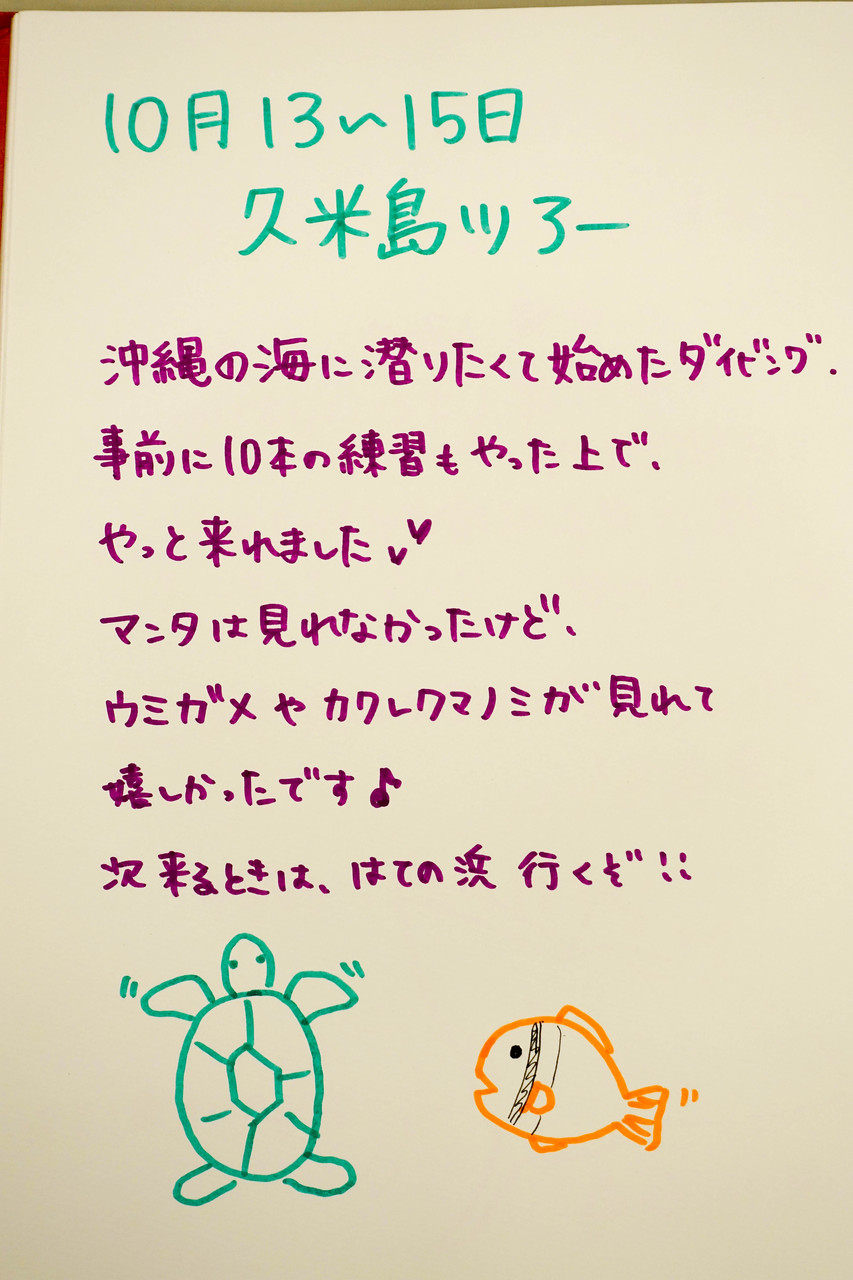 10月13〜15日
久米島ツアー
沖縄の海に潜りたくて始めたダイビング.
事前に10本の練習もやった上で、
やっと来れました♥♥
マンタは見れなかったけど、
ウミガメやカクレクマノミが見れて
嬉しかったです♪
次来るときは、はての浜行くぞ!!